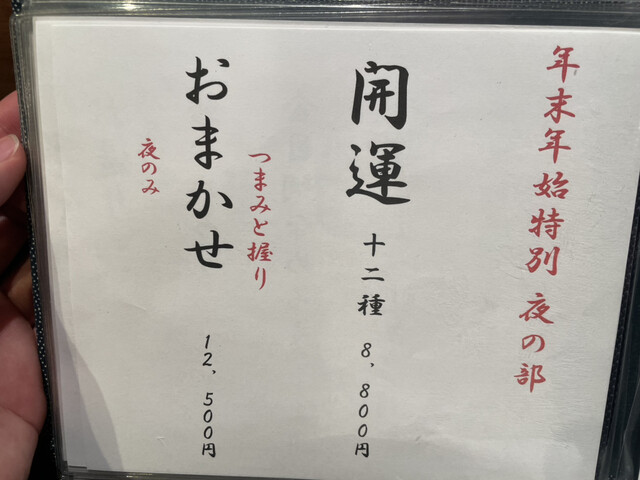 年末年始特別 夜の部
開運 十二種 8,800円
つまみと握り
おまかせ 12,500円
夜のみ